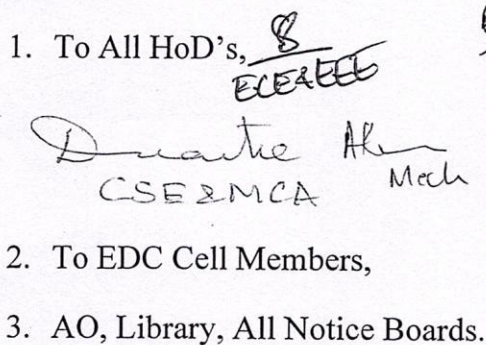 1. To All HoD's,
ECE&EEE
CSE & MCA Mech
2. To EDC Cell Members,
3. AO, Library, All Notice Boards.